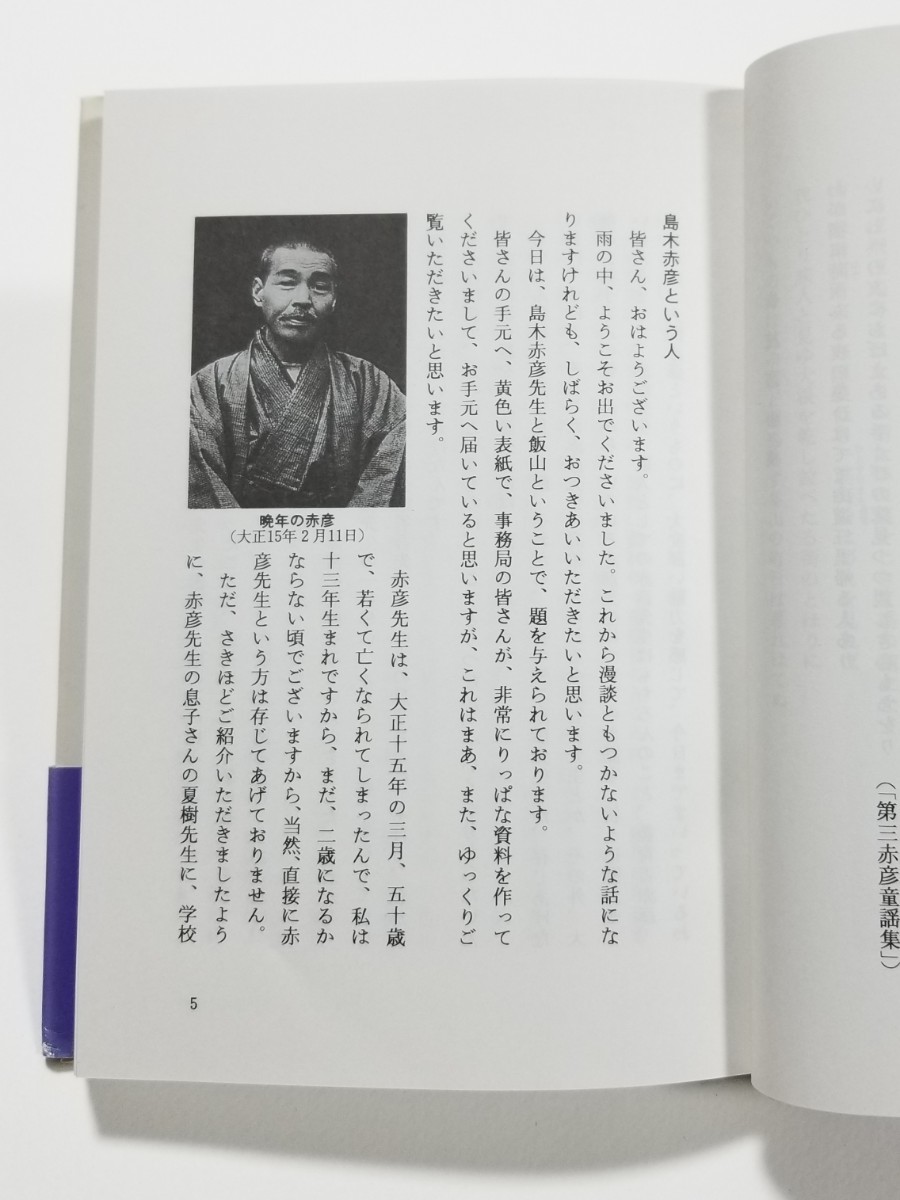 （「第三赤彦童謡集」）
島木赤彦という人
皆さん、おはようございます。
雨の中、ようこそお出でくださいました。これから漫談ともつかないような話にな
りますけれども、しばらく、おつきあいいただきたいと思います。
今日は、島木赤彦先生と飯山ということで、題を与えられております。
皆さんの手元へ、黄色い表紙で、事務局の皆さんが、非常にりっぱな資料を作って
くださいまして、お手元へ届いていると思いますが、これはまあ、また、ゆっくりご
覧いただきたいと思います。
晩年の赤彦
（大正15年2月11日）
赤彦先生は、大正十五年の三月、五十歳
で、若くて亡くなられてしまったんで、私は
十三年生まれですから、まだ、二歳になるか
ならない頃でございますから、当然、直接に赤
彦先生という方は存じてあげておりません。
ただ、さきほどご紹介いただきましたよう
に、赤彦先生の息子さんの夏樹先生に、学校
5